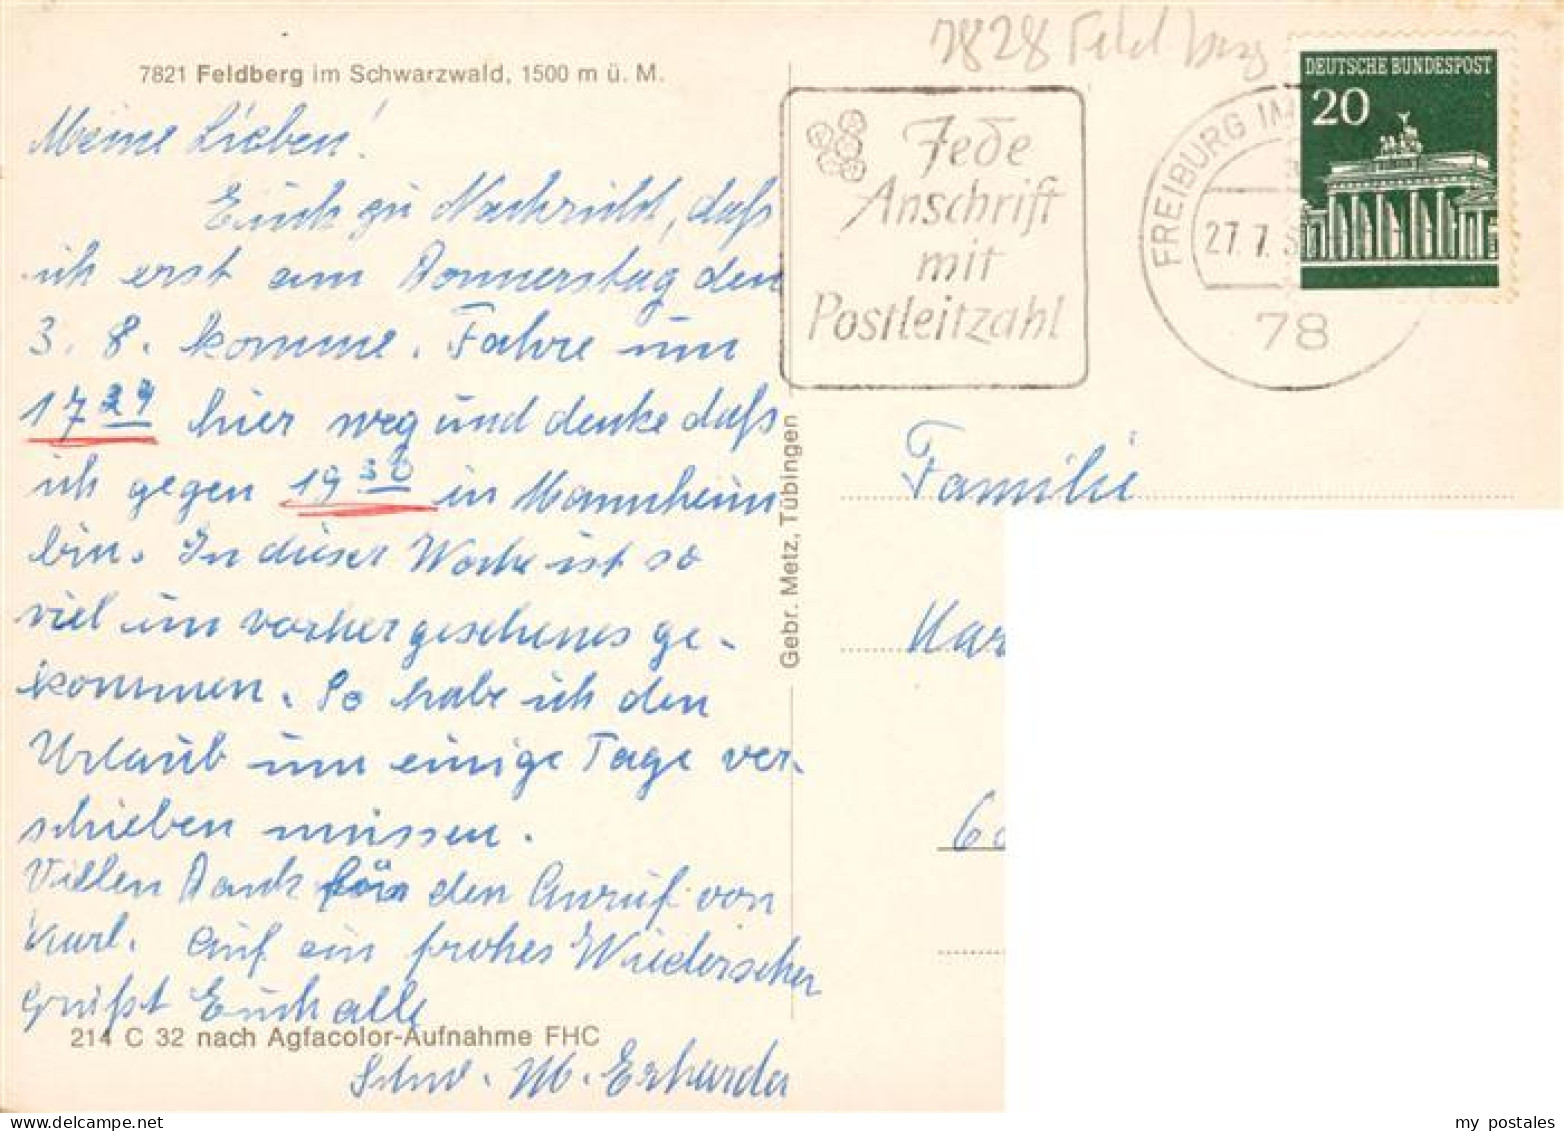 7828 Feldberg
7821 Feldberg im Schwarzwald, 1500 m ü. M.
Meine Lieben!
Euch zu Nachricht, daß
ich erst am Donnerstag den
3. 8. komme. Fahre um
17 24 hier weg und denke daß
ich gegen 19 30 in Mannheim
bin. In dieser Woche ist so
viel unvorhergesehenes ge-
kommen. So habe ich den
Urlaub um einige Tage ver-
schieben müssen.
Viellen Dank für den Anruf von
Karl. Auf ein frohes Wiedersehen
grüßt Euch alle
Schw. M. Erharda
214 C 32 nach Agfacolor-Aufnahme FHC
Gebr. Metz, Tübingen
Jede
Anschrift
mit
Postleitzahl
FREIBURG IM
27. 7.
78
DEUTSCHE BUNDESPOST
20
Familie
Kar
60
my postales